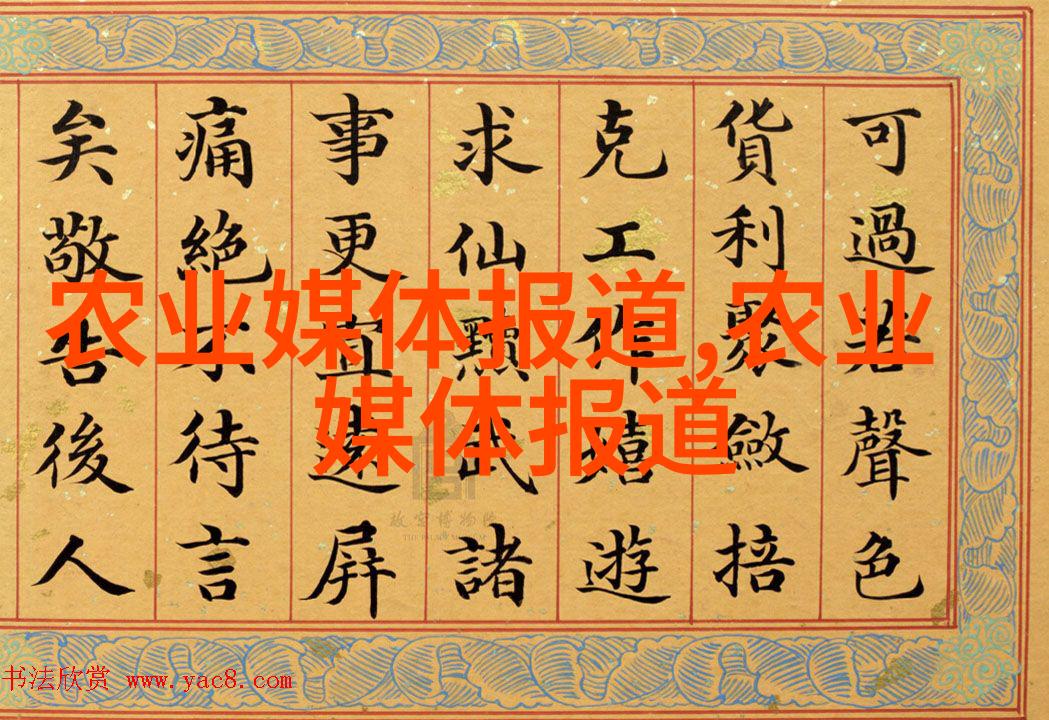 可過若聲色
貨利聚斂掊
克工作嬉遊
求仙黷武諸
事更宜遠屏
痛絕不待言
矣敬告後人
农业媒体报道,农业
媒体报道
故宫博物院
THE PALACE MUSEUM
书法欣赏 www.yac8.com